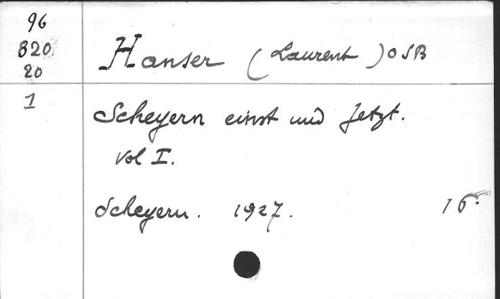 96
820
20
Hanser (Laurent) OSB
1
Scheyern einst und Jetzt.
Vol I.
Scheyern. 1927. 16°